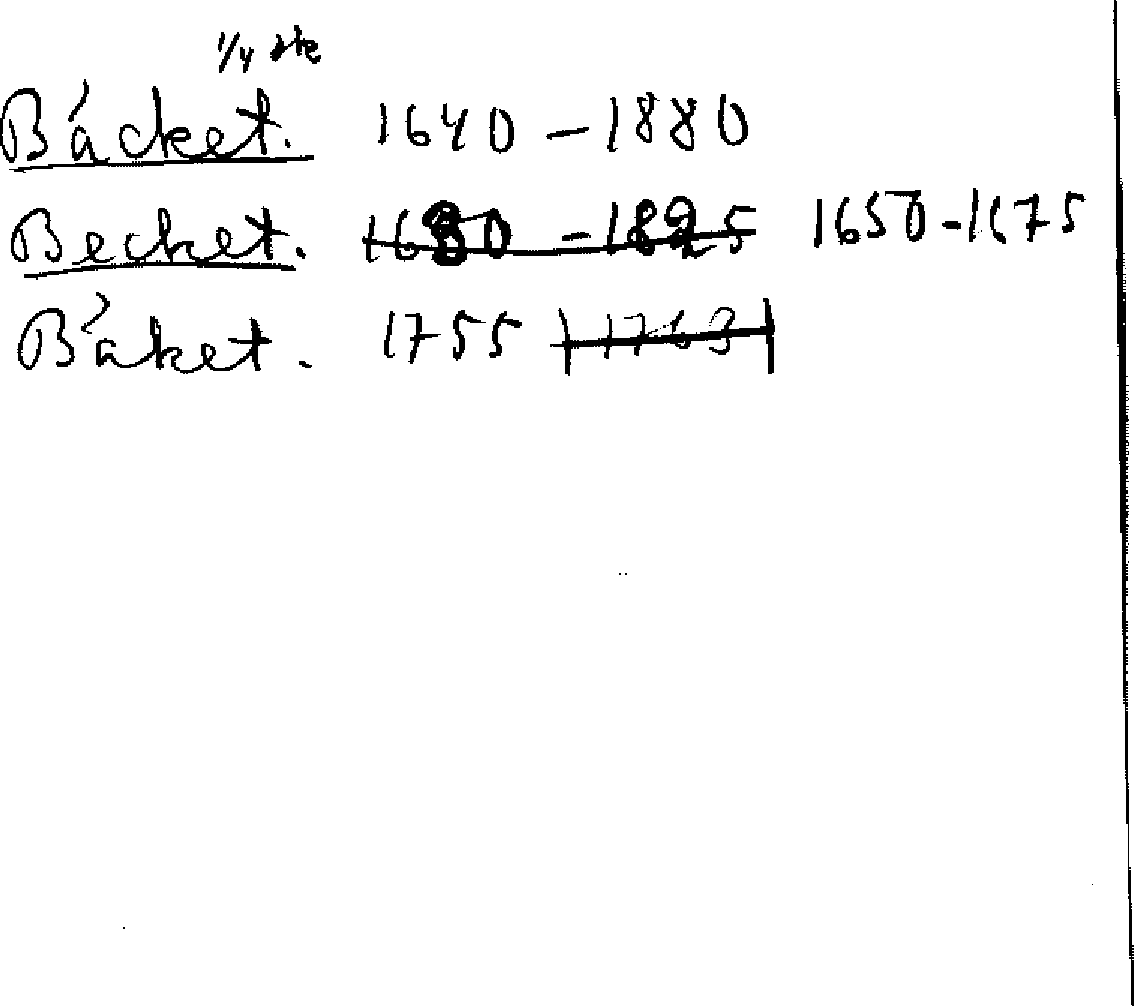 1/4 ske
Bäcket. 1640 - 1880
Becket. 1680 - 1825 1650-1675
Bäket. 1755 1763